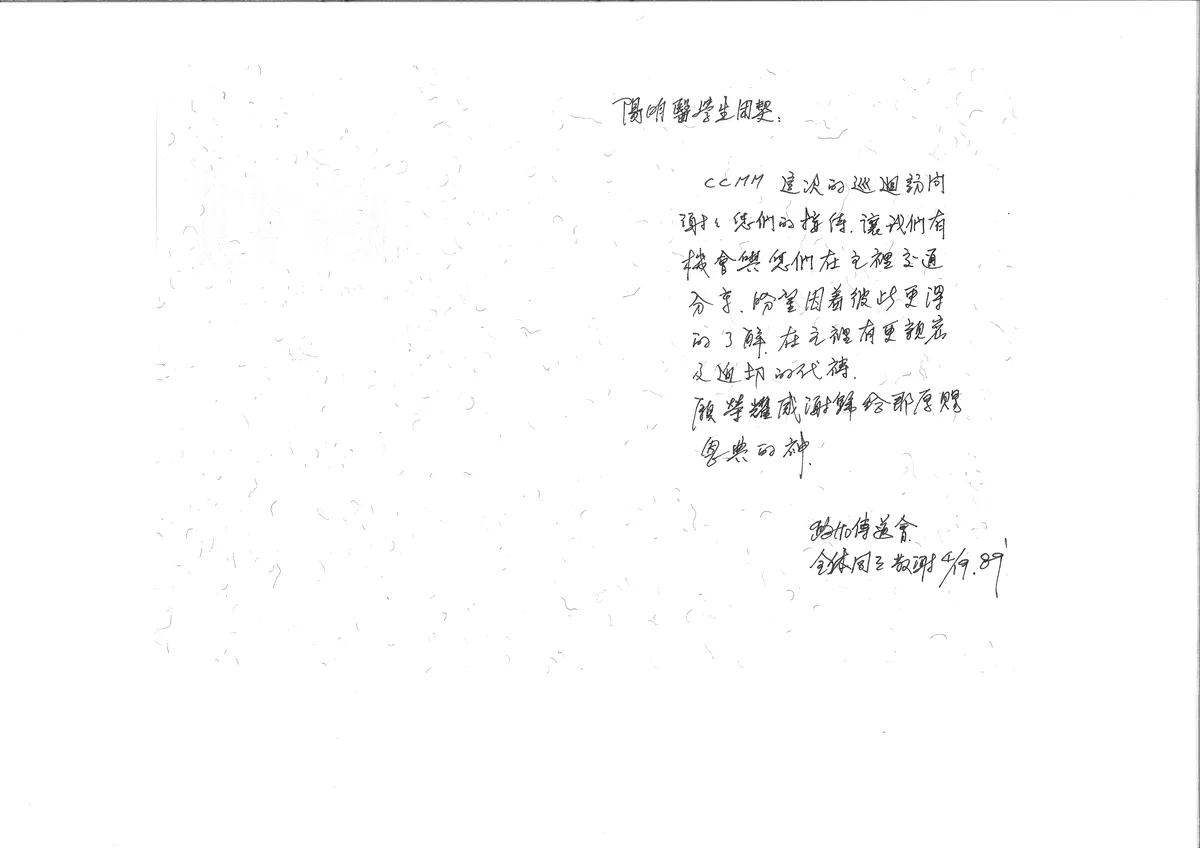 陽明醫學生團契:
CCMM 這次的巡迴訪問
謝々您們的接待.讓我們有
機會與您們在主裡交通
分享.盼望因着彼此更深
的了解.在主裡有更親密
及迫切的代禱.
願榮耀感謝歸給那厚賜
恩典的神.
路加傳道會
全体同工敬謝 4/19.89'